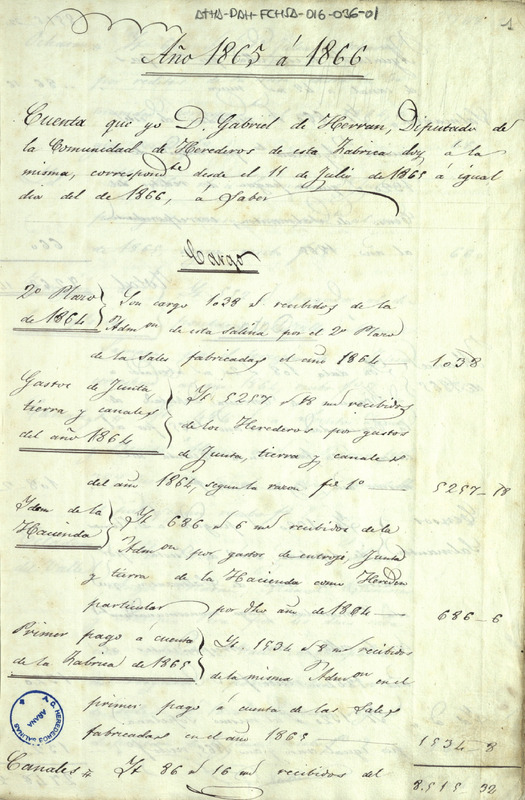 ATHA-DAH-FCHSA-016-036-01
1
Año 1865 á 1866
Cuenta que yo D. Gabriel de Herran, Diputado de
la Comunidad de Herederos de esta Fabrica doy á la
misma, correspondte desde el 11 de Julio de 1865 a igual
dia del de 1866, á Saber
Cargo
2º Plazo de 1864 } Son cargo 1038 rs recibidos de la
Admon de esta Salina por el 2º Plazo
de la Sales fabricadas el año 1864 — 1038
Gastos de Junta tierra y canales del año 1864 } Yt 5257 rs 18 ms recibidos
de los Herederos por gastos
de Junta, tierra y canales
del año 1864, segun la razon fº 1º — 5257-18
Ydem de la Hacienda } Yt 686 rs 6 ms recibidos de la
Admon por gastos de entroje, Junta
y tierra de la Hacienda como Hereden
particular por dho año de 1864 — 686-6
Primer pago a cuenta de la Fabrica de 1865 } Yt. 1534 rs 8 ms recibidos
de la misma Admon en el
primer pago á cuenta de las Sales
fabricadas en el año 1865 — 1534-8
Canales Yt 86 rs 16 ms recibidos del
8.515 32
A. D. HEREDEROS SALINAS AÑANA